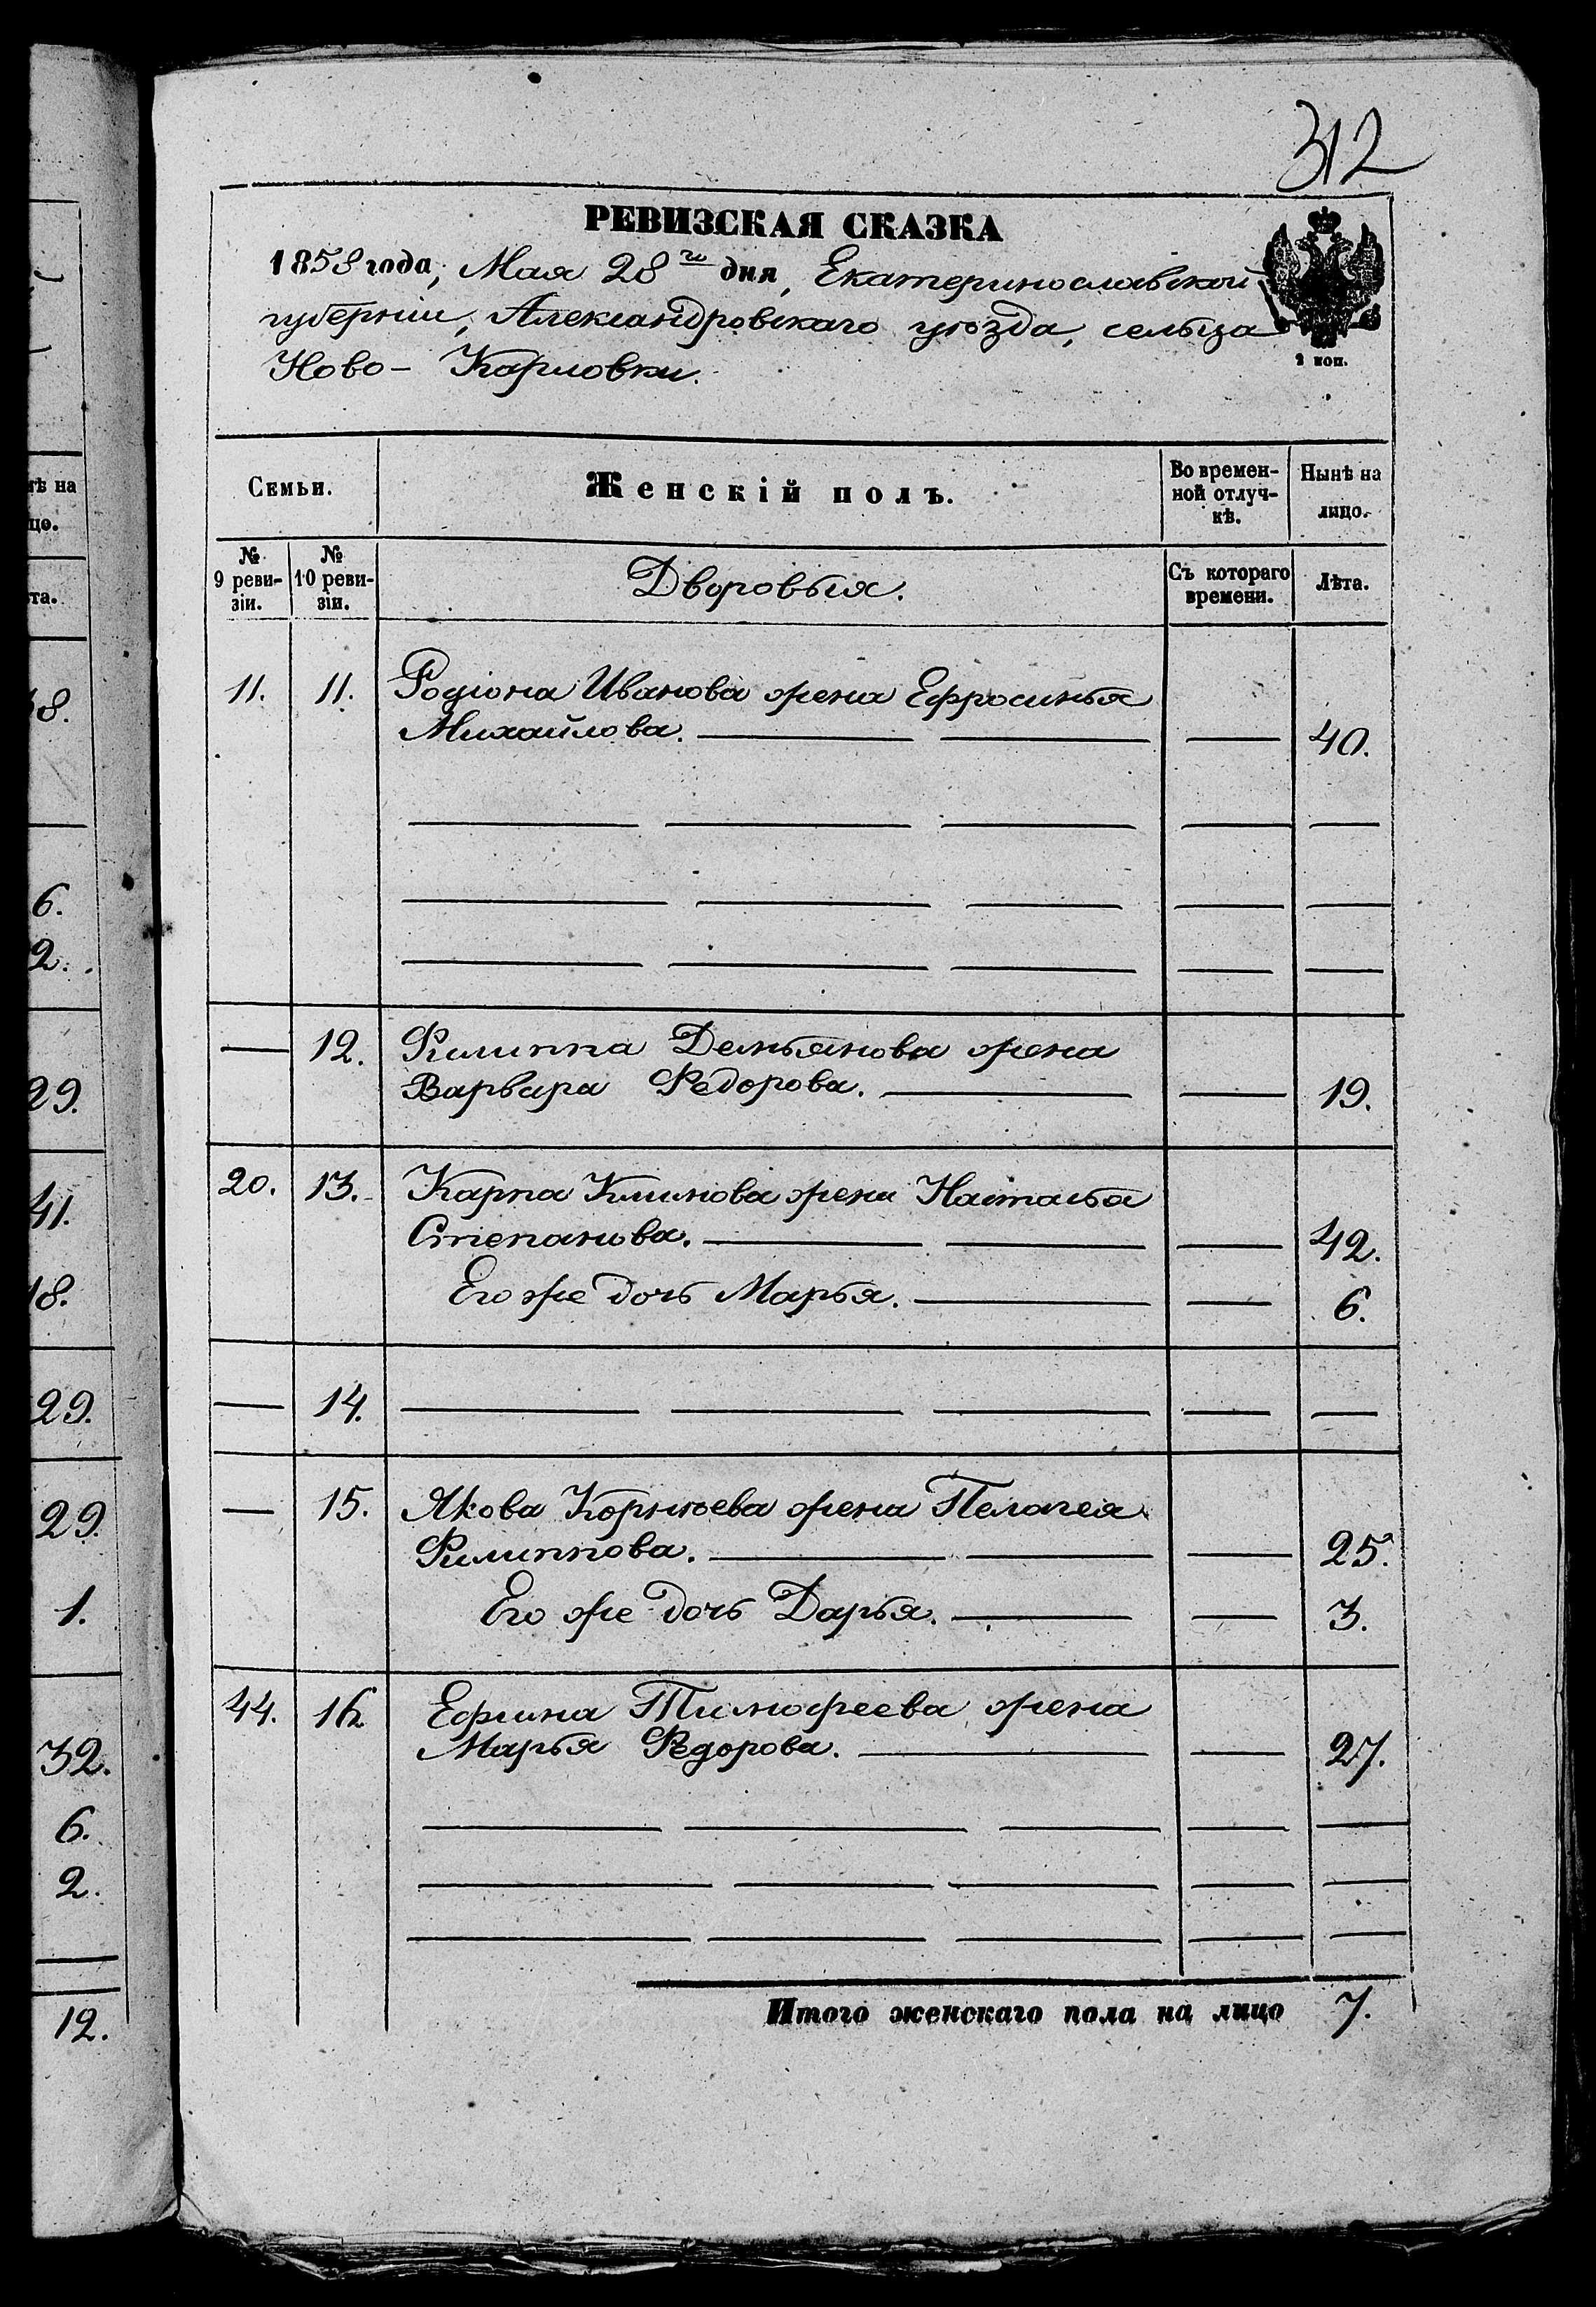 312
РЕВИЗСКАЯ СКАЗКА
1858 года, Мая 28го дня, Екатеринославской
губерніи, Александровскаго уѣзда, сельца
Ново- Карловки.
2 коп.
Семьи. Женскій полъ. Во времен-ной отлуч-кѣ. Нынѣ на лицо.
№ 9 реви-зіи. № 10 реви-зіи. Дворовыя. Съ котораго времени. Лѣта.
11. 11. Родіона Иванова жена Ефросинья
Михайлова. 40.
12. Филиппа Демьянова жена
Варвара Федорова. 19.
20. 13. Карпа Климова жена Наталья
Степанова. 42.
Его же дочь Марья. 6.
14.
15. Якова Корнѣева жена Пелагея
Филиппова. 25.
Его же дочь Дарья. 3.
44. 16. Ефима Тимофеева жена
Марья Федорова. 27.
Итого женскаго пола на лицо 7.
тѣ на
цо.
та.
8.
6.
2.
29.
41.
18.
29.
29.
1.
32.
6.
2.
12.